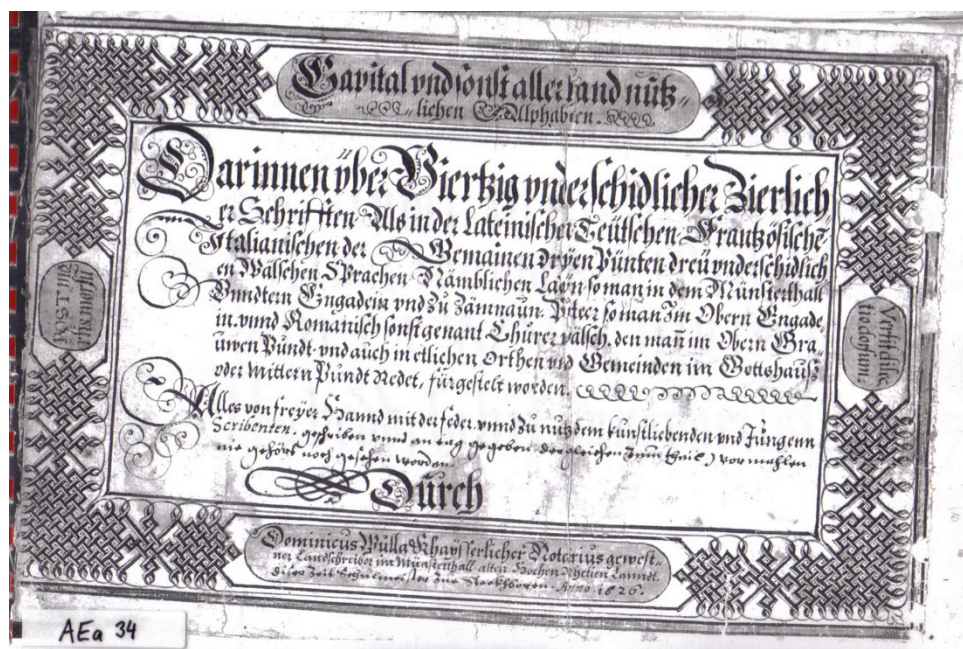 Capital vnd sonst allerhand nütz„
„lichen Alphabien.
Darinnen vber Viertzig vnderschidlicher Zierlich„
er Schrifften. Als in der Lateinischer Teütschen. Frantzösische
Italianischen der Gemainen dryen Pünten dreü vnderschidlich
en Wälschen Sprachen. Nämblichen Ladÿn so man in dem Münsterthall
Vndtern Engadein vnd Zu Zämnaun. Püter so man Im Obern Engade„
in. vnnd Romanisch sonst genant Churer wälsch. den man̄ im Obern Gra„
üwen Pündt. vnd auch in etlichen Orthen vnd Gemeinden im Gottshauß
oder Mittlern Pündt Redet, fürgestelt worden.
Alles von freÿer Hannd mit der feder. vnnd Zu nutz dem kunstliebenden vnd Jüngenn
Scribenten. geschriben vnnd an tag gegeben. dergleichen Zum theil) vormahlen
nie gehört noch gesehen worden.
Durch
Dominicus Wulla Khaÿserlicher Notarius gewest„
ner Landschreiber im Münsterthall alten Hochen Rhetien Lanndt.
diser Zeit Schulmeister Zue Anno 1626.
AEa 34